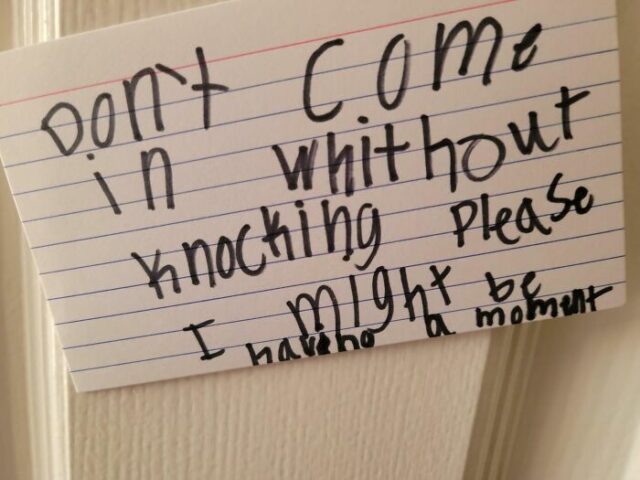 Don't come
in whithout
knocking Please
I might be
haveho a moment